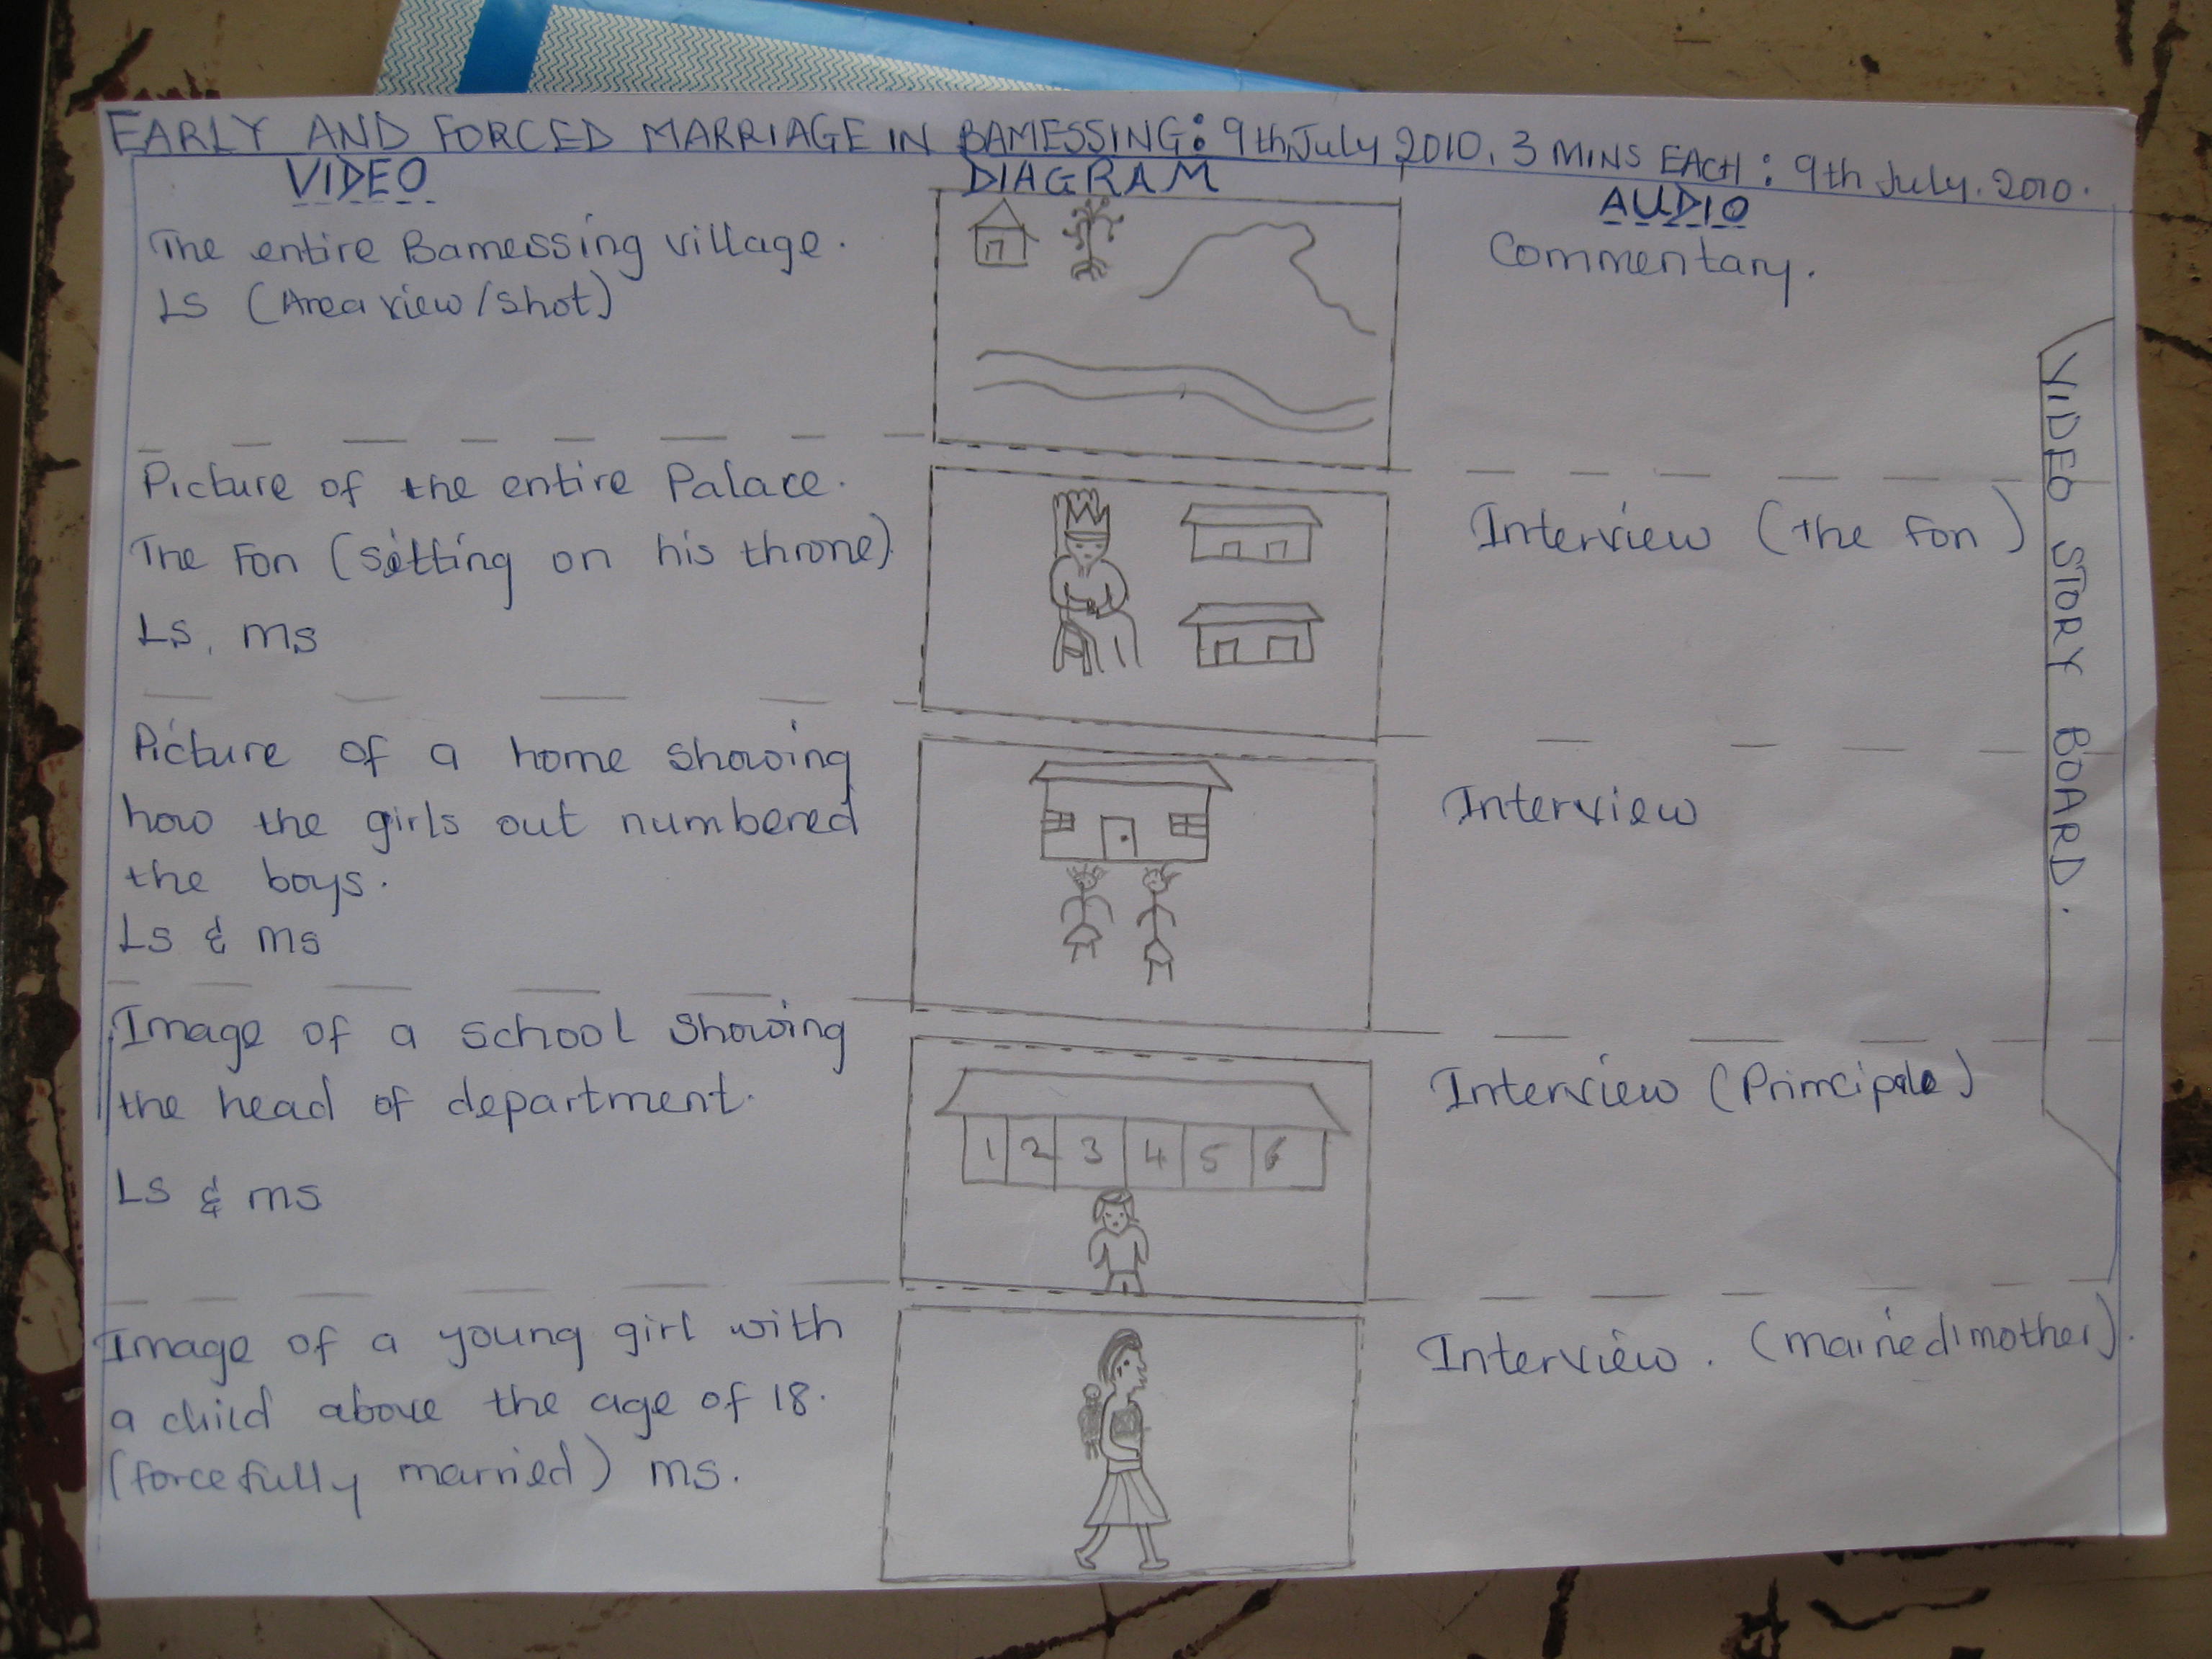 EARLY AND FORCED MARRIAGE IN BAMESSING: 9th July 2010. 3 MINS EACH: 9th July. 2010.
VIDEO
DIAGRAM
AUDIO
The entire Bamessing village.
LS (Area view/shot)
Commentary.
Picture of the entire Palace.
The Fon (sitting on his throne)
Ls, ms
Interview (the Fon)
Picture of a home showing
how the girls out numbered
the boys.
Ls & ms
Interview
Image of a school showing
the head of department.
Ls & ms
1 2 3 4 5 6
Interview (Principale)
Image of a young girl with
a child above the age of 18.
(forcefully married) ms.
Interview. (married/mother).
VIDEO STORY BOARD.